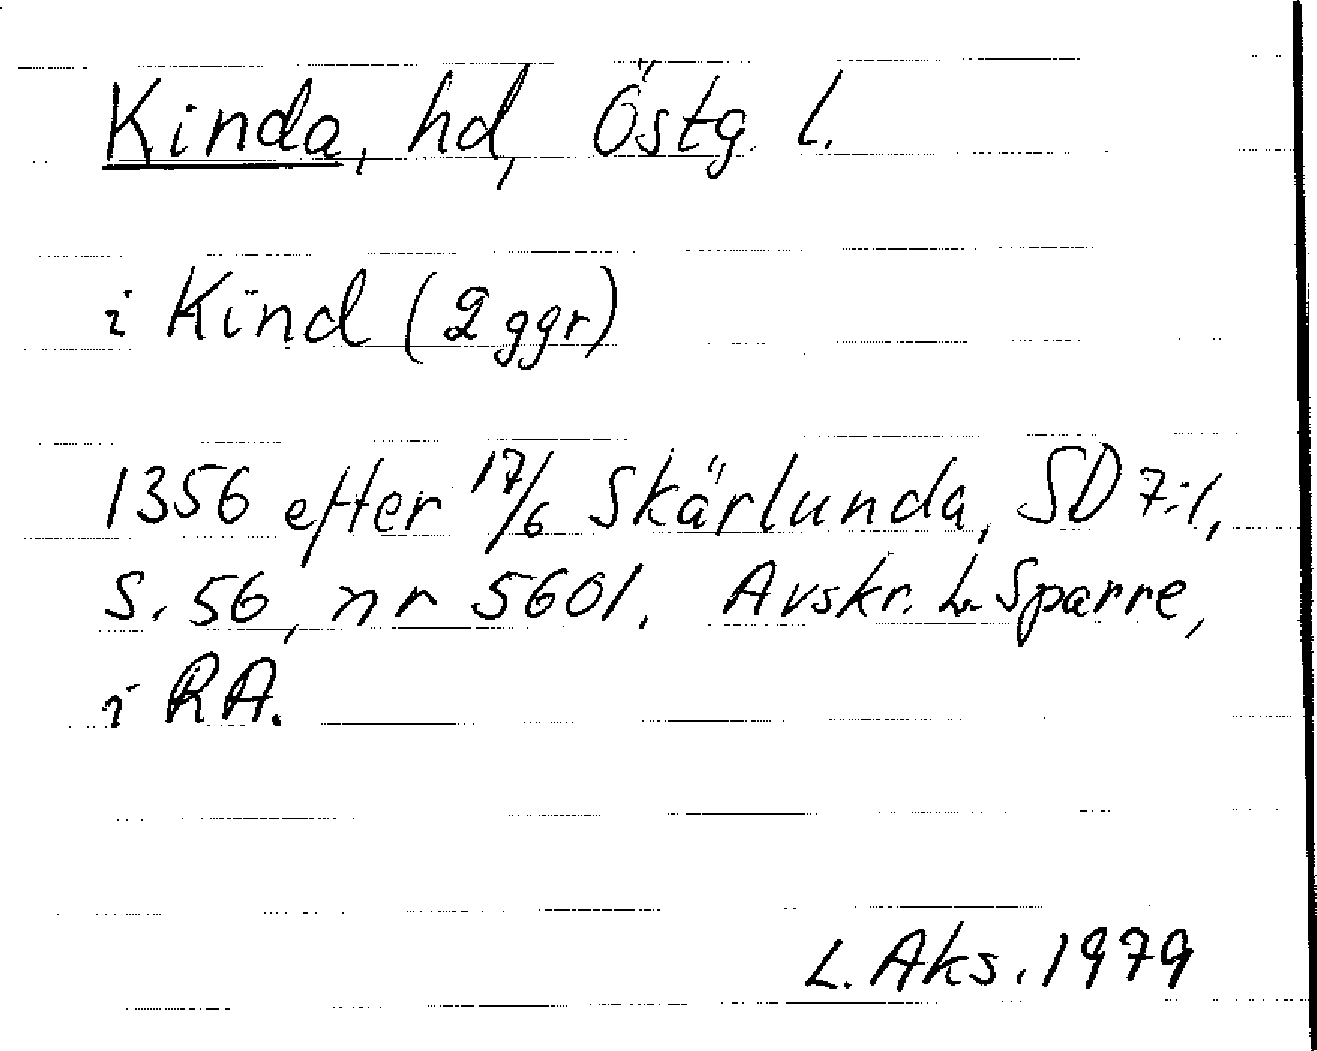 Kinda, hd, Östg. l.
i Kind (2 ggr)
1356 efter 17/6 Skärlunda, SD 7:1,
S. 56, nr 5601. Avskr. L. Sparre,
i RA.
L. Aks. 1979